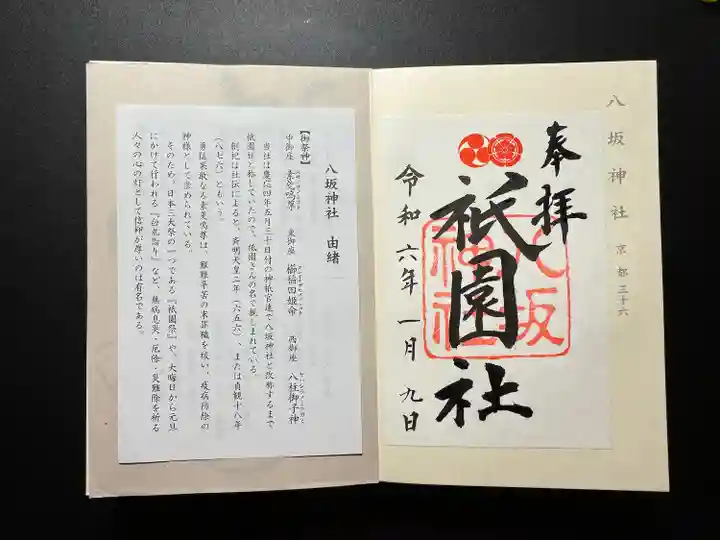 八坂神社 京都三十六
奉拝
八坂
神社
祇園社
令和六年一月九日
八坂神社 由緒
【御祭神】
中御座 素戔嗚尊 東御座 櫛稲田姫命 西御座 八柱御子神
当社は慶応四年五月三十日付の神祇官達で八坂神社と改称するまで
祇園社と称していたので、祇園さんの名で親しまれている。
創祀は社伝によると、斉明天皇二年(六五六)、または貞観十八年
(八七六)ともいう。
勇猛果敢なる素戔嗚尊は、艱難辛苦の末罪穢を祓い、疫病防除の
神様として崇められている。
そのため、日本三大祭の一つである『祇園祭』や、大晦日から元旦
にかけて行われる『白朮詣り』など、無病息災・厄除・災難除を祈る
人々の心の灯として信仰が厚いのは有名である。